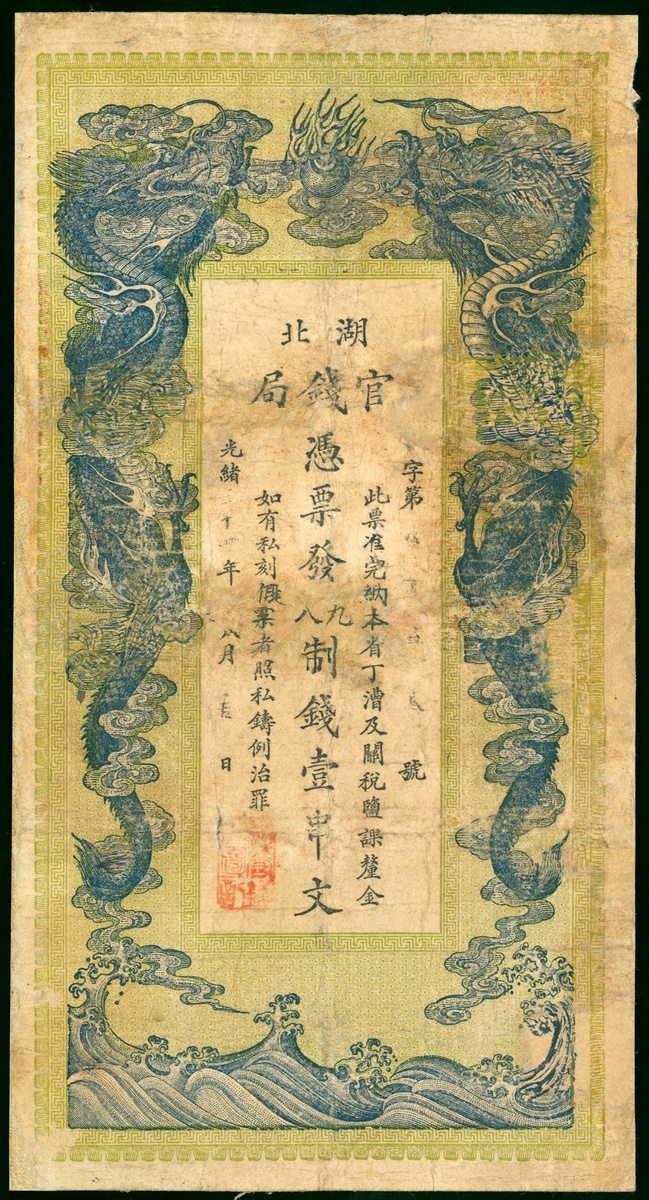 湖北
官錢局
字第 號
此票准完納本省丁漕及關稅鹽課釐金
憑票發九八制錢壹串文
如有私刻假票者照私鑄例治罪
光緒三十四年八月 日